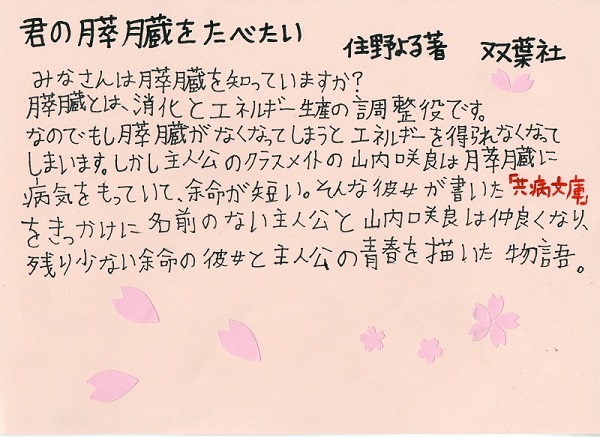 君の膵臓をたべたい 住野よる著 双葉社
みなさんは膵臓を知っていますか?
膵臓とは、消化とエネルギー生産の調整役です。
なのでもし膵臓がなくなってしまうとエネルギーを得られなくなって
しまいます。しかし主人公のクラスメイトの山内咲良は膵臓に
病気をもっていて、余命が短い。そんな彼女が書いた「共病文庫」
をきっかけに名前のない主人公と山内咲良は仲良くなり、
残り少ない余命の彼女と主人公の青春を描いた物語。